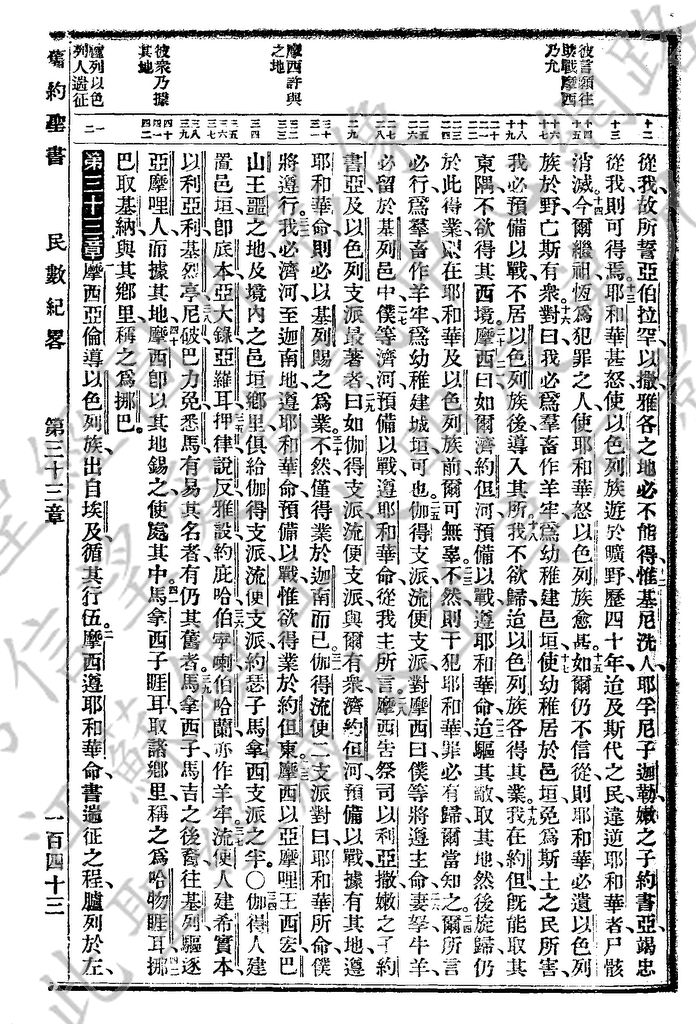 彼言願往
助戰摩西
乃允
摩西許與
之地
彼衆乃據
其地
臚列以色
列人遄征
從我故所誓亞伯拉罕以撒雅各之地必不能得惟基尼洗人耶孚尼子迦勒嫩之子約書亞竭忠
從我則可得焉耶和華甚怒使以色列族遊於曠野歷四十年迨及斯代之民違逆耶和華者尸骸
消滅今爾繼祖恆爲犯罪之人使耶和華怒以色列族愈甚如爾仍不信從則耶和華必遺以色列
族於野亡斯有衆對曰我必爲羣畜作羊牢爲幼稚建邑垣使幼稚居於邑垣免爲斯土之民所害
我必預備以戰不居以色列族後導入其所我不欲歸迨以色列族各得其業我在約但旣能取其
東隅不欲得其西境摩西曰如爾濟約但河預備以戰遵耶和華命迨驅其敵取其地然後旋歸仍
於此得業則在耶和華及以色列族前爾可無辜不然則干犯耶和華罪必有歸爾當知之爾所言
必行爲羣畜作羊牢爲幼稚建城垣可也伽得支派流便支派對摩西曰僕等將遵主命妻孥牛羊
必留於基列邑中僕等濟河預備以戰遵耶和華命從我主所言摩西告祭司以利亞撒嫩之子約
書亞及以色列支派最著者曰如伽得支派流便支派與爾有衆濟約但河預備以戰據有其地遵
耶和華命則必以基列賜之爲業不然僅得業於迦南而已伽得流便二支派對曰耶和華所命僕
將遵行我必濟河至迦南地遵耶和華命預備以戰惟欲得業於約但東摩西以亞摩哩王西宏巴
山王噩之地及境內之邑垣鄉里俱給伽得支派流便支派約瑟子馬拿西支派之半○伽得人建
置邑垣卽底本亞大錄亞羅耳押律說反雅設約庇哈伯寧喇伯哈蘭亦作羊牢流便人建希實本
以利亞利基烈亭尼破巴力免悉馬有易其名者有仍其舊者馬拿西子馬吉之後裔往基列驅逐
亞摩哩人而據其地摩西卽以其地錫之使處其中馬拿西子睚耳取諸鄉里稱之爲哈物睚耳挪
巴取基納與其鄉里稱之爲挪巴
第三十三章摩西亞倫導以色列族出自埃及循其行伍摩西遵耶和華命書遄征之程臚列於左
舊約聖書 民數紀畧 第三十三章 一百四十三